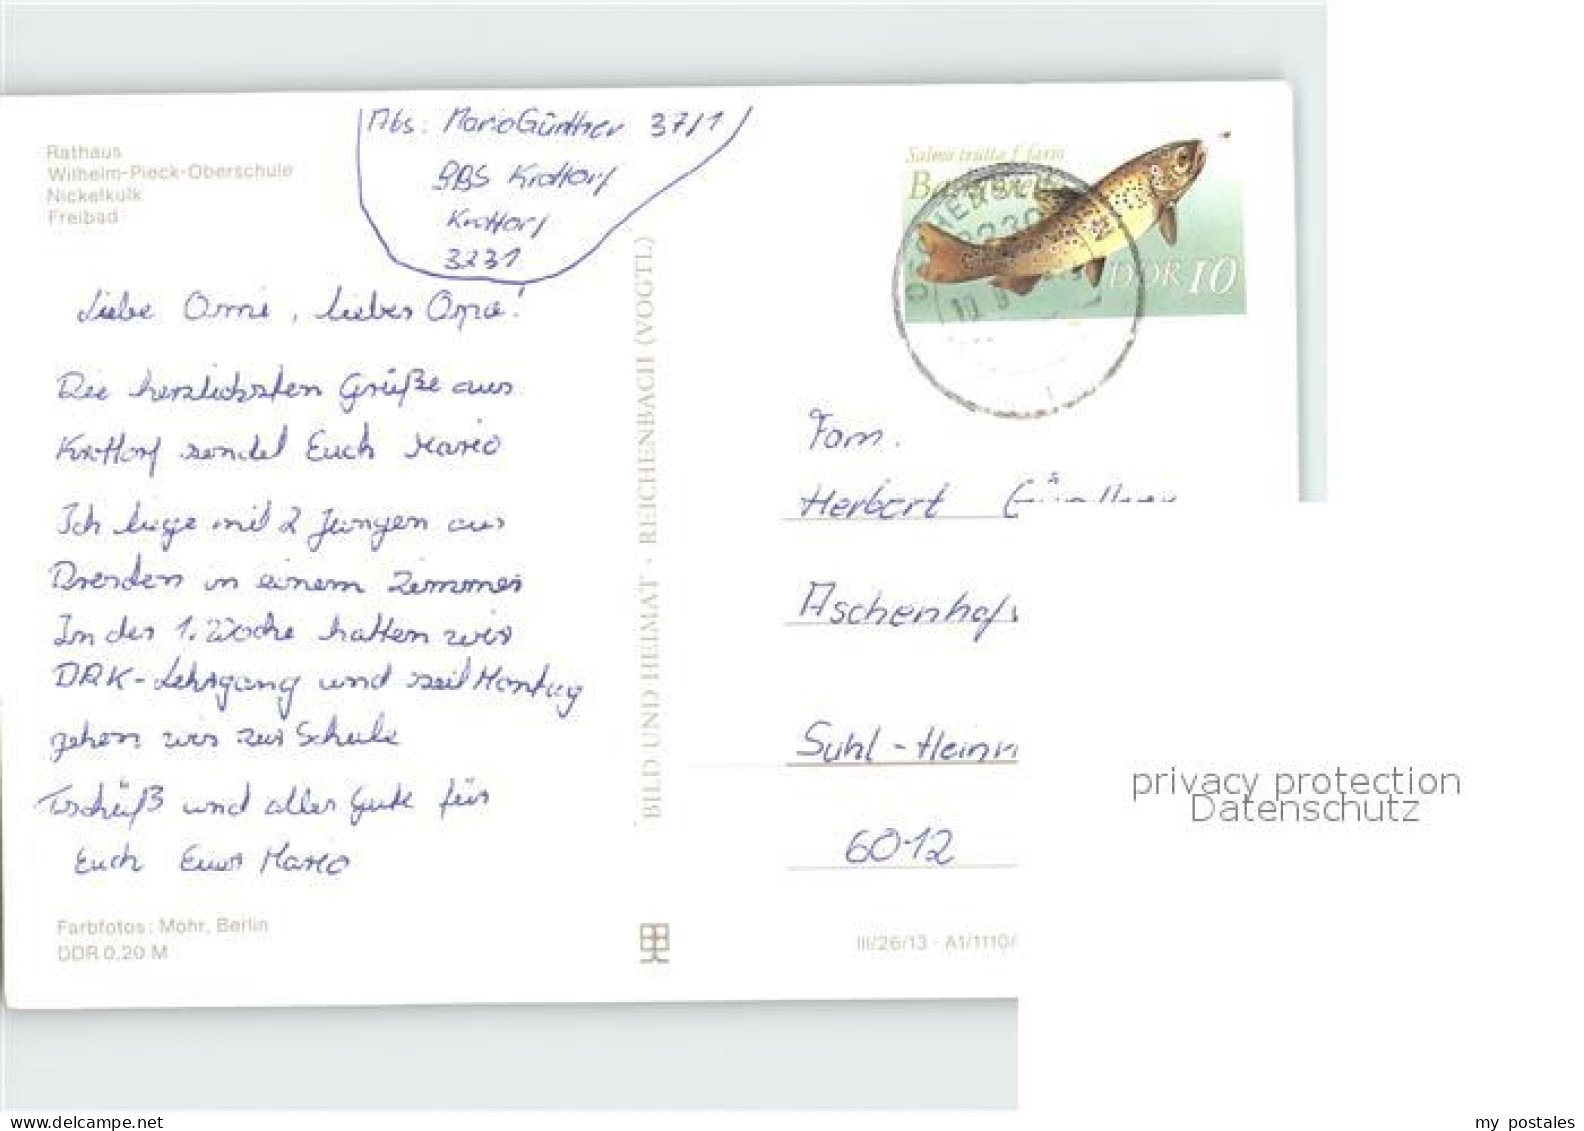 Rathaus
Wilhelm-Pieck-Oberschule
Nickelkulk
Freibad
Abs: Mario Günther 37/1
BBS Krottorf
Krottorf
3231
Liebe Omi, lieber Opa!
Die herzlichsten Grüße aus
Krottorf sendet Euch Mario
Ich liege mit 2 Jungen aus
Dresden in einem Zimmer
In der 1. Woche hatten wir
DRK-Lehrgang und seit Montag
gehen wir zur Schule
Tschüß und alles Gute für
Euch Euer Mario
Farbfotos: Mohr, Berlin
DDR 0,20 M
BILD UND HEIMAT · REICHENBACH (VOGTL)
Salmo trutta f. fario
Bachforelle
DDR 10
Fam.
Herbert
Aschenhof
Suhl-Heinr
6012
III/26/13 - A1/1110/
privacy protection
Datenschutz
my postales